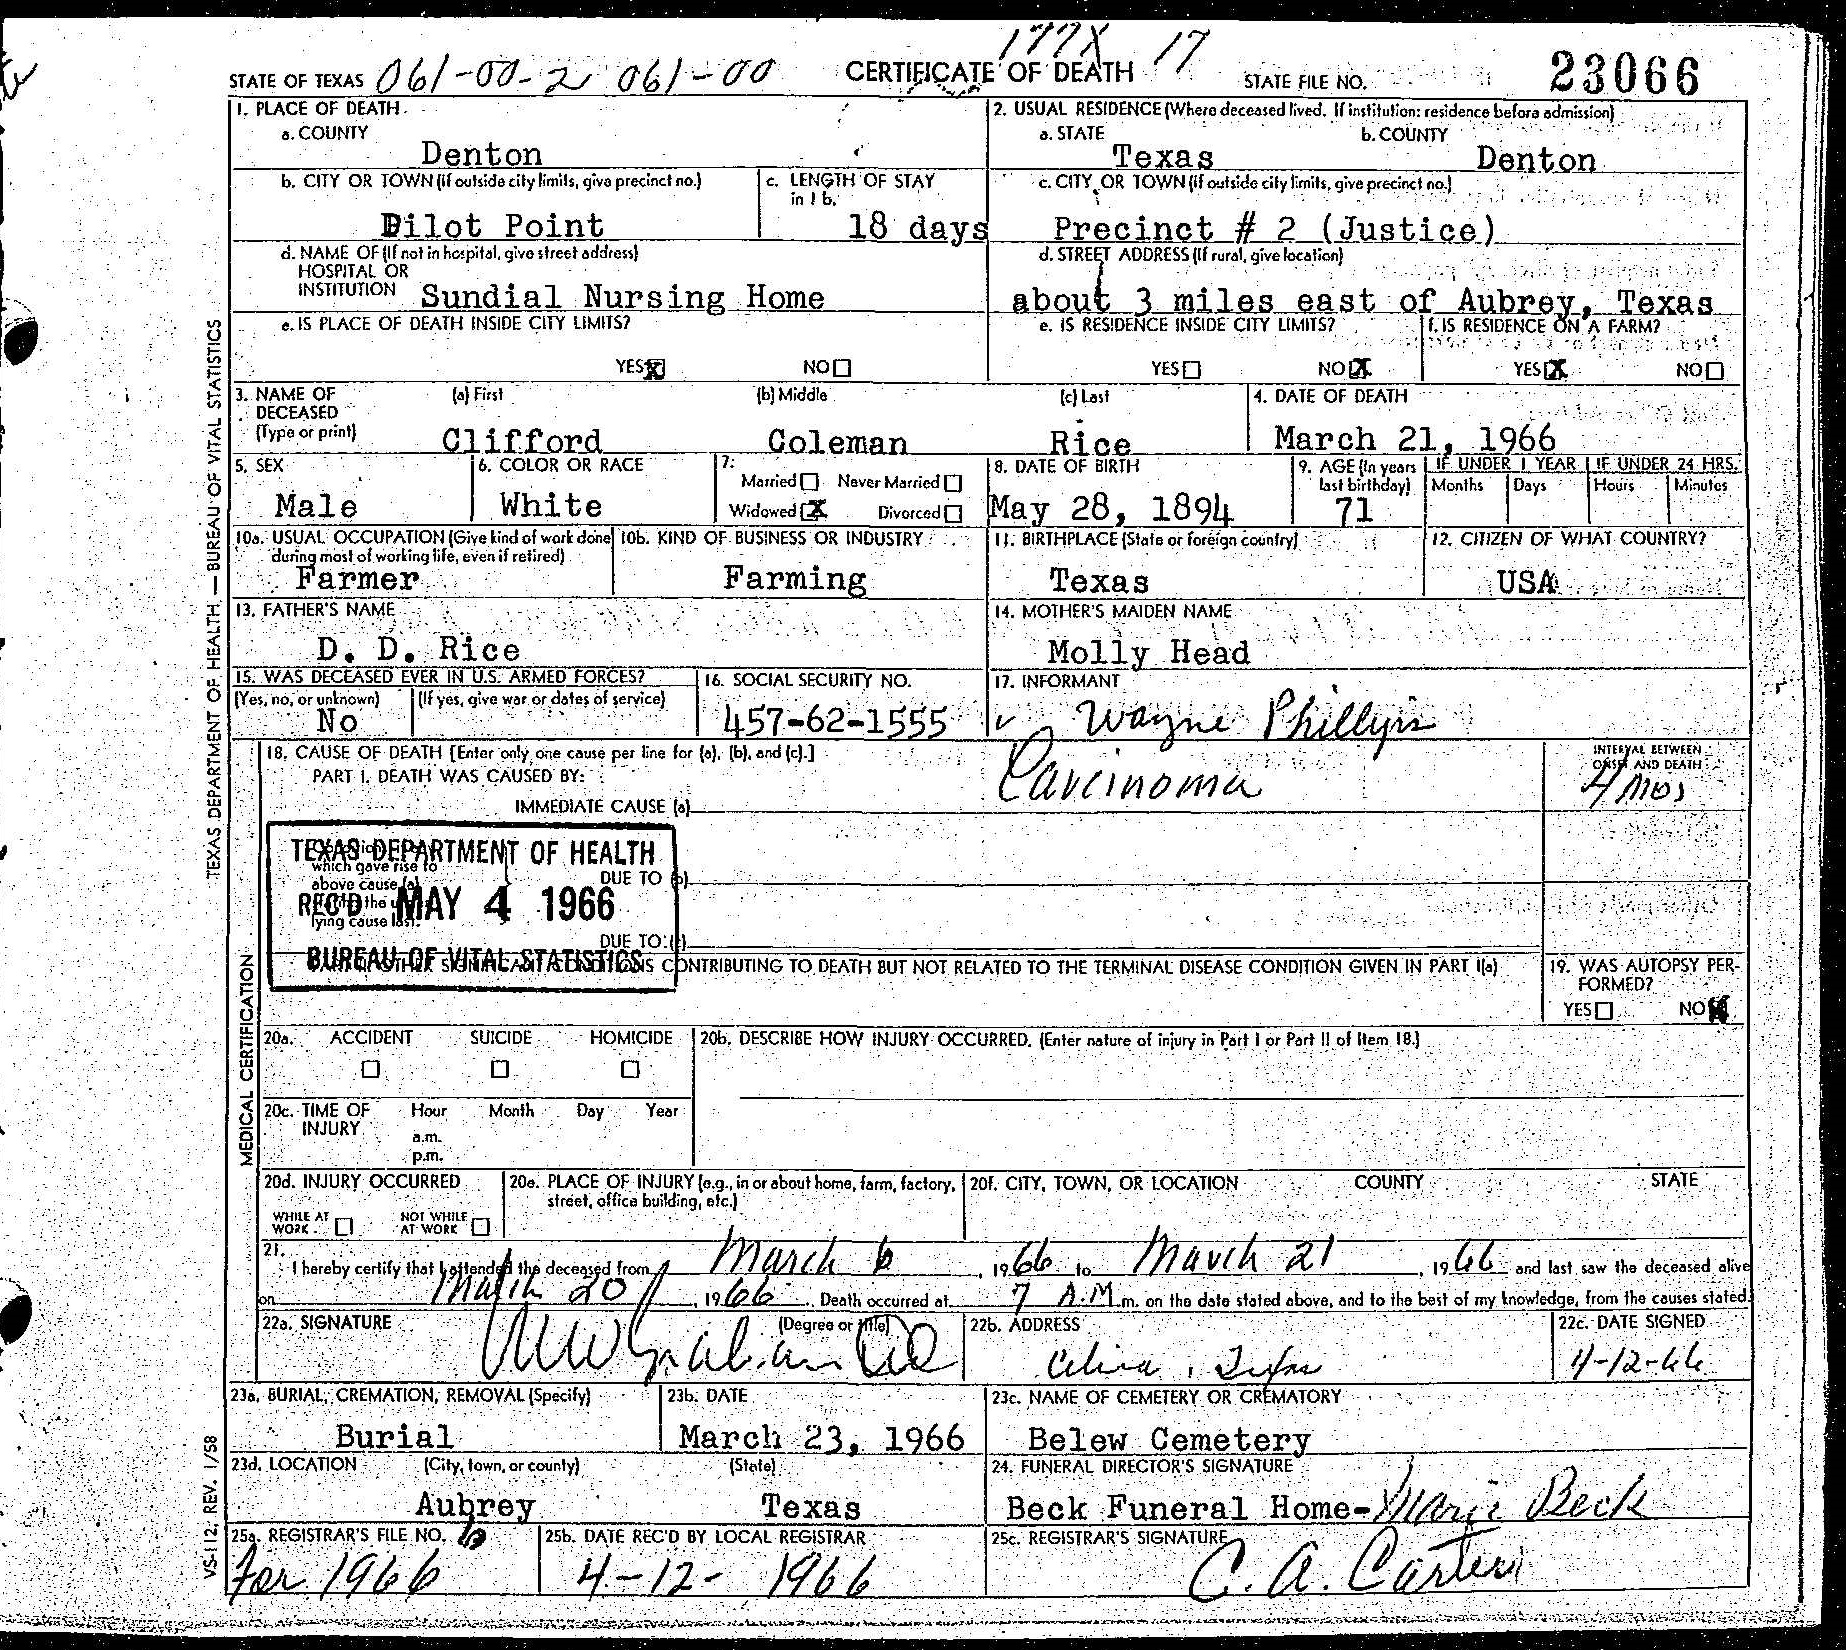 177X 17
STATE OF TEXAS 061-00-2 061-00 CERTIFICATE OF DEATH STATE FILE NO. 23066
1. PLACE OF DEATH
a. COUNTY
Denton
2. USUAL RESIDENCE (Where deceased lived. If institution: residence before admission)
a. STATE b. COUNTY
Texas Denton
b. CITY OR TOWN (if outside city limits, give precinct no.)
Pilot Point
c. LENGTH OF STAY
in 1 b.
18 days
c. CITY OR TOWN (if outside city limits, give precinct no.)
Precinct # 2 (Justice)
d. NAME OF (If not in hospital, give street address)
HOSPITAL OR
INSTITUTION Sundial Nursing Home
d. STREET ADDRESS (If rural, give location)
about 3 miles east of Aubrey, Texas
e. IS PLACE OF DEATH INSIDE CITY LIMITS?
YES X NO
e. IS RESIDENCE INSIDE CITY LIMITS?
YES NO X
f. IS RESIDENCE ON A FARM?
YES X NO
3. NAME OF
DECEASED
(Type or print)
(a) First (b) Middle (c) Last
Clifford Coleman Rice
4. DATE OF DEATH
March 21, 1966
5. SEX
Male
6. COLOR OR RACE
White
7.
Married Never Married
Widowed X Divorced
8. DATE OF BIRTH
May 28, 1894
9. AGE (In years
last birthday)
71
IF UNDER 1 YEAR IF UNDER 24 HRS.
Months Days Hours Minutes
10a. USUAL OCCUPATION (Give kind of work done
during most of working life, even if retired)
Farmer
10b. KIND OF BUSINESS OR INDUSTRY
Farming
11. BIRTHPLACE (State or foreign country)
Texas
12. CITIZEN OF WHAT COUNTRY?
USA
13. FATHER'S NAME
D. D. Rice
14. MOTHER'S MAIDEN NAME
Molly Head
15. WAS DECEASED EVER IN U.S. ARMED FORCES?
(Yes, no, or unknown) (If yes, give war or dates of service)
No
16. SOCIAL SECURITY NO.
457-62-1555
17. INFORMANT
Wayne Phillips
18. CAUSE OF DEATH [Enter only one cause per line for (a), (b), and (c).]
PART I. DEATH WAS CAUSED BY:
IMMEDIATE CAUSE (a) Carcinoma
INTERVAL BETWEEN
ONSET AND DEATH
4 mos
TEXAS DEPARTMENT OF HEALTH
which gave rise to
above cause (a)
DUE TO (b)
REC'D MAY 4 1966
lying cause last.
DUE TO (c)
BUREAU OF VITAL STATISTICS
CONTRIBUTING TO DEATH BUT NOT RELATED TO THE TERMINAL DISEASE CONDITION GIVEN IN PART I(a)
19. WAS AUTOPSY PER-
FORMED?
YES NO X
20a. ACCIDENT SUICIDE HOMICIDE
20b. DESCRIBE HOW INJURY OCCURRED. (Enter nature of injury in Part I or Part II of Item 18.)
20c. TIME OF
INJURY
Hour Month Day Year
a.m.
p.m.
20d. INJURY OCCURRED
WHILE AT
WORK
NOT WHILE
AT WORK
20e. PLACE OF INJURY (e.g., in or about home, farm, factory,
street, office building, etc.)
20f. CITY, TOWN, OR LOCATION COUNTY STATE
21.
I hereby certify that I attended the deceased from March 6, 1966 to March 21, 1966 and last saw the deceased alive
on March 20, 1966. Death occurred at 7 A.M. m. on the date stated above, and to the best of my knowledge, from the causes stated.
22a. SIGNATURE (Degree or title)
22b. ADDRESS
Celina, Texas
22c. DATE SIGNED
4-12-66
23a. BURIAL, CREMATION, REMOVAL (Specify)
Burial
23b. DATE
March 23, 1966
23c. NAME OF CEMETERY OR CREMATORY
Belew Cemetery
23d. LOCATION (City, town, or county) (State)
Aubrey Texas
24. FUNERAL DIRECTOR'S SIGNATURE
Beck Funeral Home-Marie Beck
25a. REGISTRAR'S FILE NO. 6
For 1966
25b. DATE REC'D BY LOCAL REGISTRAR
4-12-1966
25c. REGISTRAR'S SIGNATURE
C. A. Carter
TEXAS DEPARTMENT OF HEALTH — BUREAU OF VITAL STATISTICS
MEDICAL CERTIFICATION
VS-112, REV. 1/58